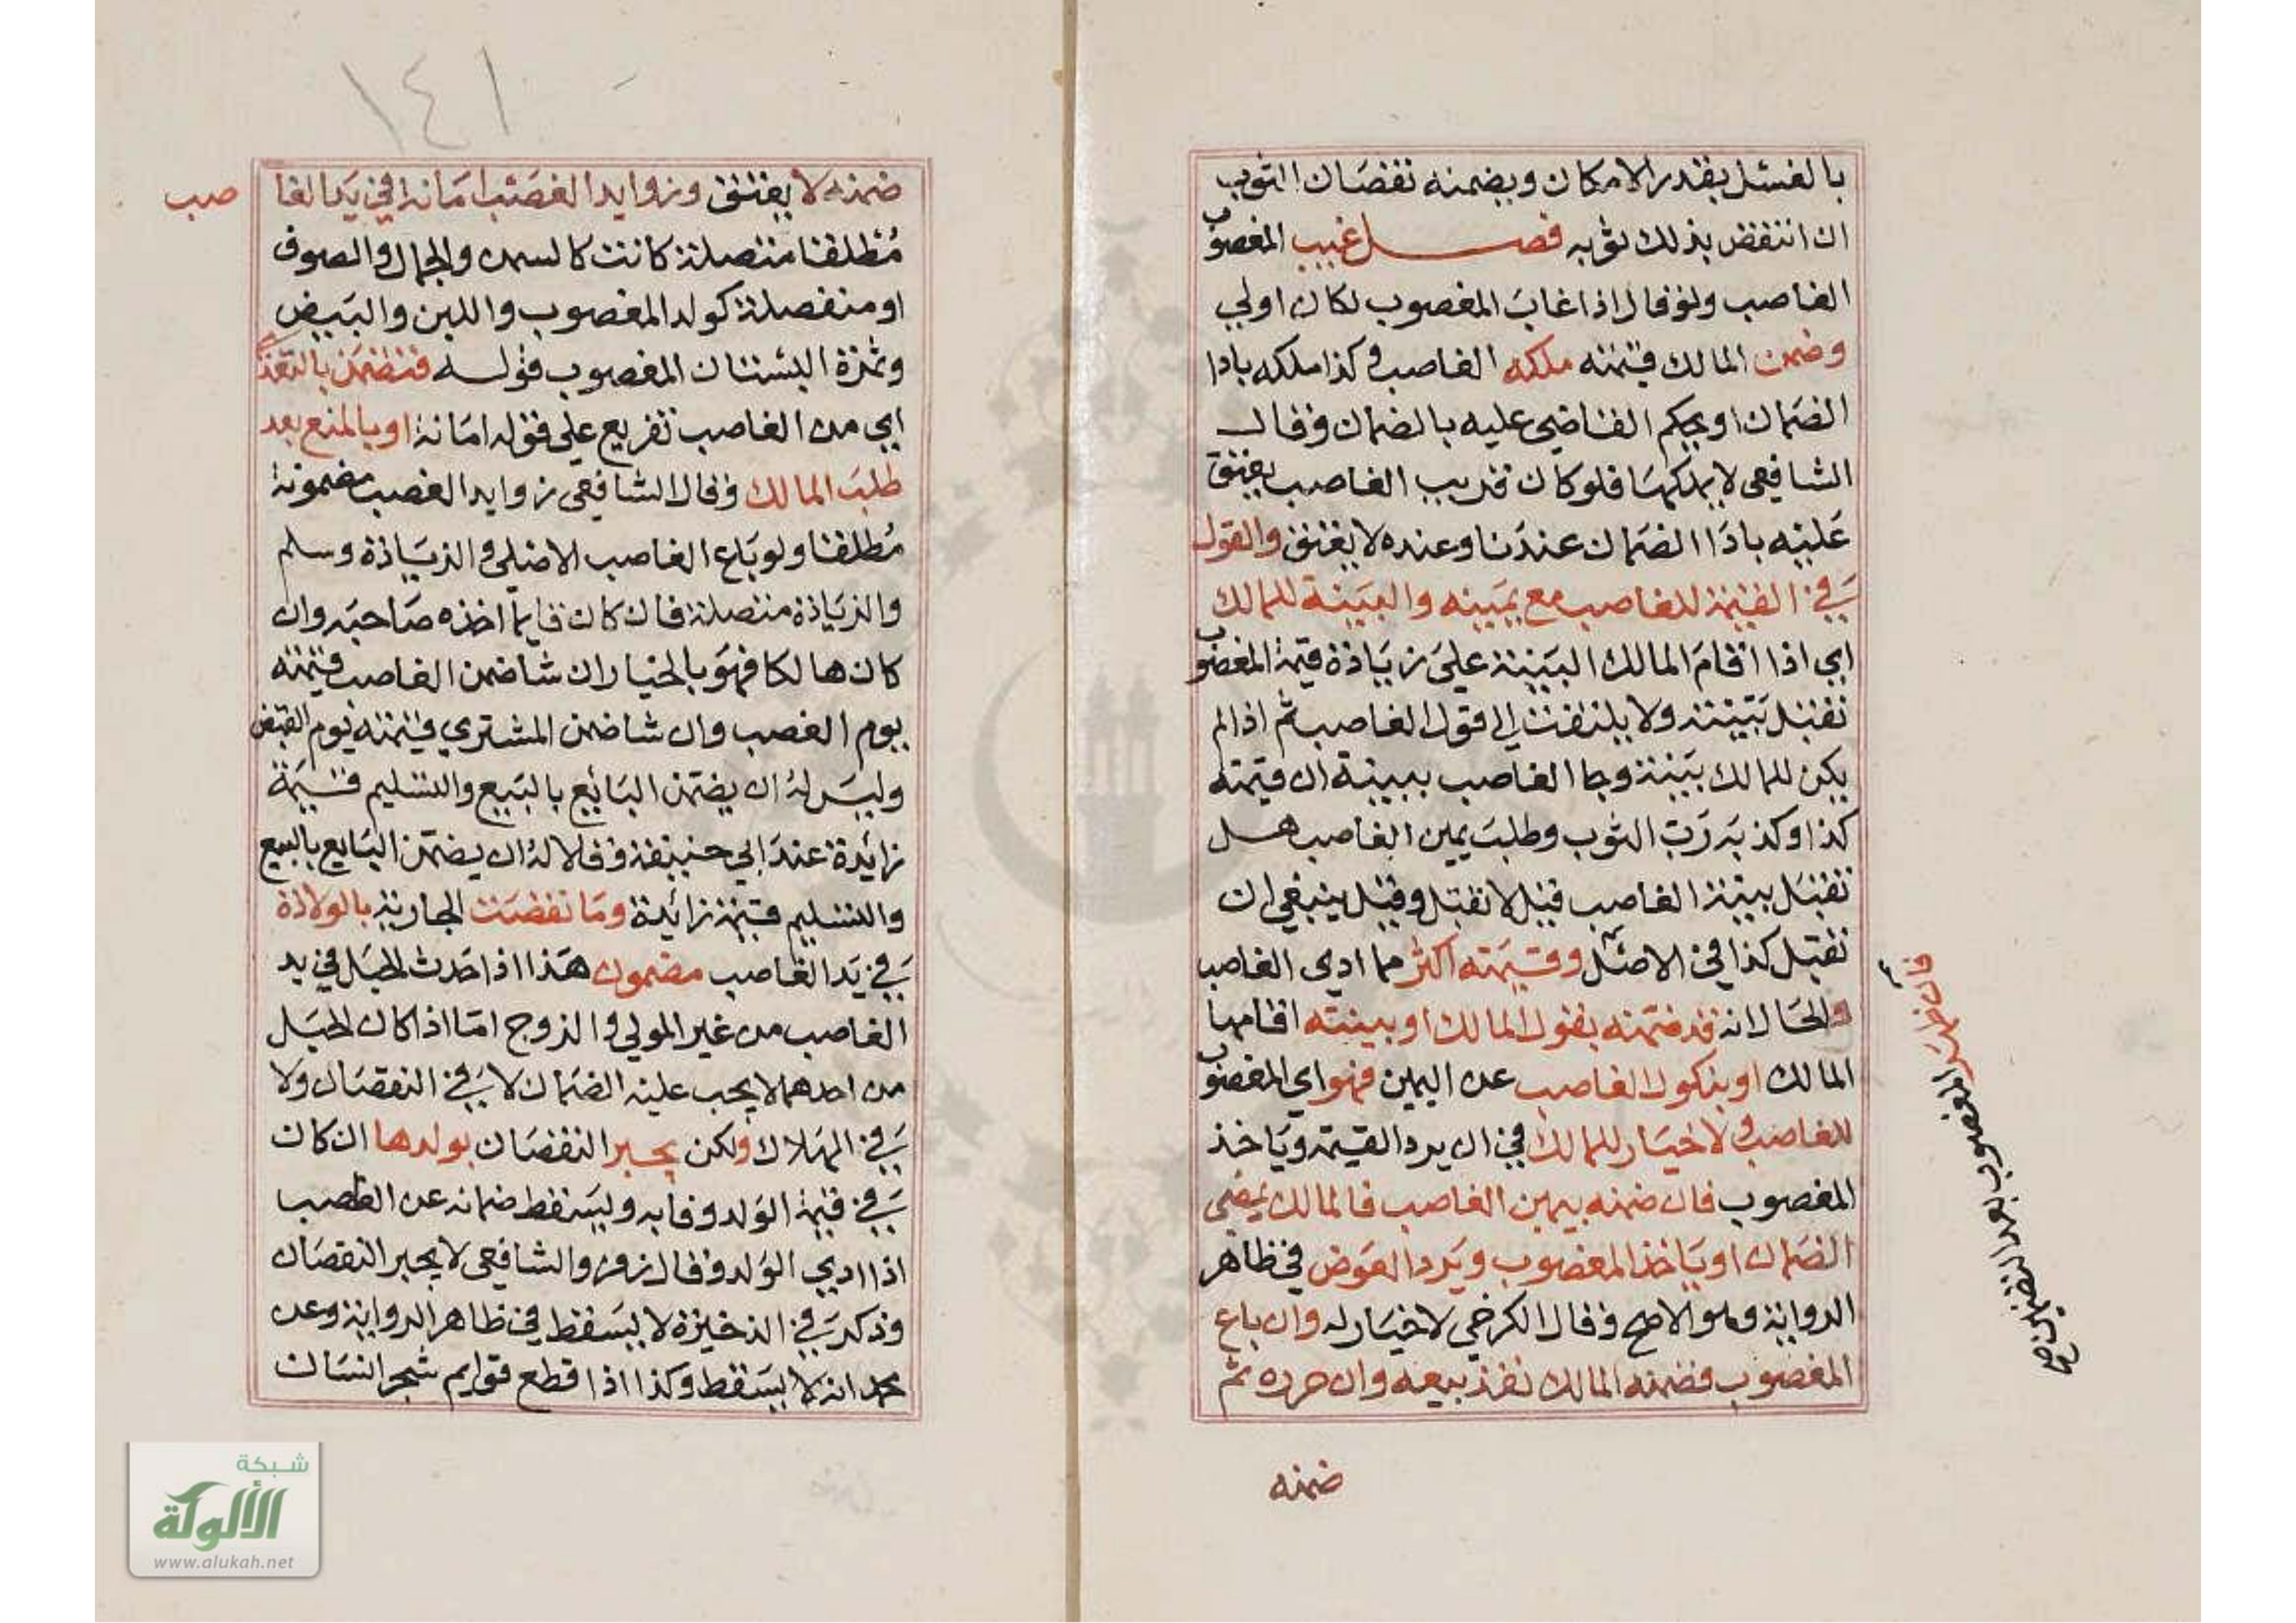 بالغسل بقدر الامكان ويضمنه نقصان الثوب
ان انتقض بذلك ثوبه فصل غيب المغصوب
الغاصب ولو قال اذا غاب المغصوب لكان اولي
وضمن المالك قيمته ملكه الغاصب وكذا ملكه بادا
الضمان او بحكم القاضي عليه بالضمان وقال
الشافعي لا يملكها فلو كان قريب الغاصب يعتق
عليه بادا الضمان عندنا وعنده لا يعتق والقول
في القيمة للغاصب مع يمينه والبينة للمالك
اي اذا اقام المالك البينة علي زيادة قيمة المغصوب
تقبل بينته ولا يلتفت الي قول الغاصب ثم اذا لم
يكن للمالك بينة وجا الغاصب ببينة ان قيمته
كذا وكذ به رب الثوب وطلب يمين الغاصب هل
تقبل بينة الغاصب قيل لا تقبل وقيل ينبغي ان
تقبل كذا في الاصل وقيمته اكثر مما ادي الغاصب
والحال انه قد ضمنه بقول المالك او ببينته اقامها
المالك او بنكول الغاصب عن اليمين فهو اي المغصوب
للغاصب ولا خيار للمالك في ان يرد القيمة وياخذ
المغصوب فان ضمنه بيمين الغاصب فالمالك يمضي
الضمان او ياخذ المغصوب ويرد العوض في ظاهر
الرواية وهو الاصح وقال الكرخي لا خيار له وان باع
المغصوب فضمنه المالك نفذ بيعه وان حرره ثم
ضمنه
فان ظهر المغصوب بعد التضمين صح
١٤١
ضمنه لا يعتق وزوايد الغصب امانة في يد الغا
صب
مطلقا متصلة كانت كالسمن والجمال والصوف
او منفصلة كولد المغصوب واللبن والبيض
وثمرة البستان المغصوب قوله فتضمن بالتعد
اي من الغاصب تفريع علي قوله امانة او بالمنع بعد
طلب المالك وقال الشافعي زوايد الغصب مضمونة
مطلقا ولو باع الغاصب الاصل والزيادة وسلم
والزيادة متصلة فان كان قايما اخذه صاحبه وان
كان هالكا فهو بالخيار ان شا ضمن الغاصب قيمته
يوم الغصب وان شا ضمن المشتري قيمته يوم القبض
وليس له ان يضمن البائع بالبيع والتسليم قيمة
زائدة عند ابي حنيفة وقالا له ان يضمن البايع بالبيع
والتسليم قيمة زائدة وما نقصت الجارية بالولادة
في يد الغاصب مضمون هذا اذا حدث الحبل في يد
الغاصب من غير المولي والزوج اما اذا كان الحبل
من احدهما لا يجب عليه الضمان لا في النقصان ولا
في الهلاك ولكن يجبر النقصان بولدها ان كان
في قيمة الولد وفا به ويسقط ضمانه عن الغاصب
اذا ادي الولد وقال زفر والشافعي لا يجبر النقصان
وذكر في الذخيرة لا يسقط في ظاهر الرواية وعن
محمد انه لا يسقط وكذا اذا قطع قوايم شجر انسان
شبكة
الألوكة
www.alukah.net